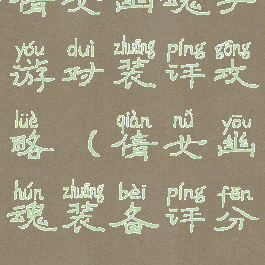 倩女幽魂手
yóu duì zhuāng píng gōng
游对装评攻
lüè qiàn nǚ yōu
略(倩女幽
hún zhuāng bèi píng fēn
魂装备评分